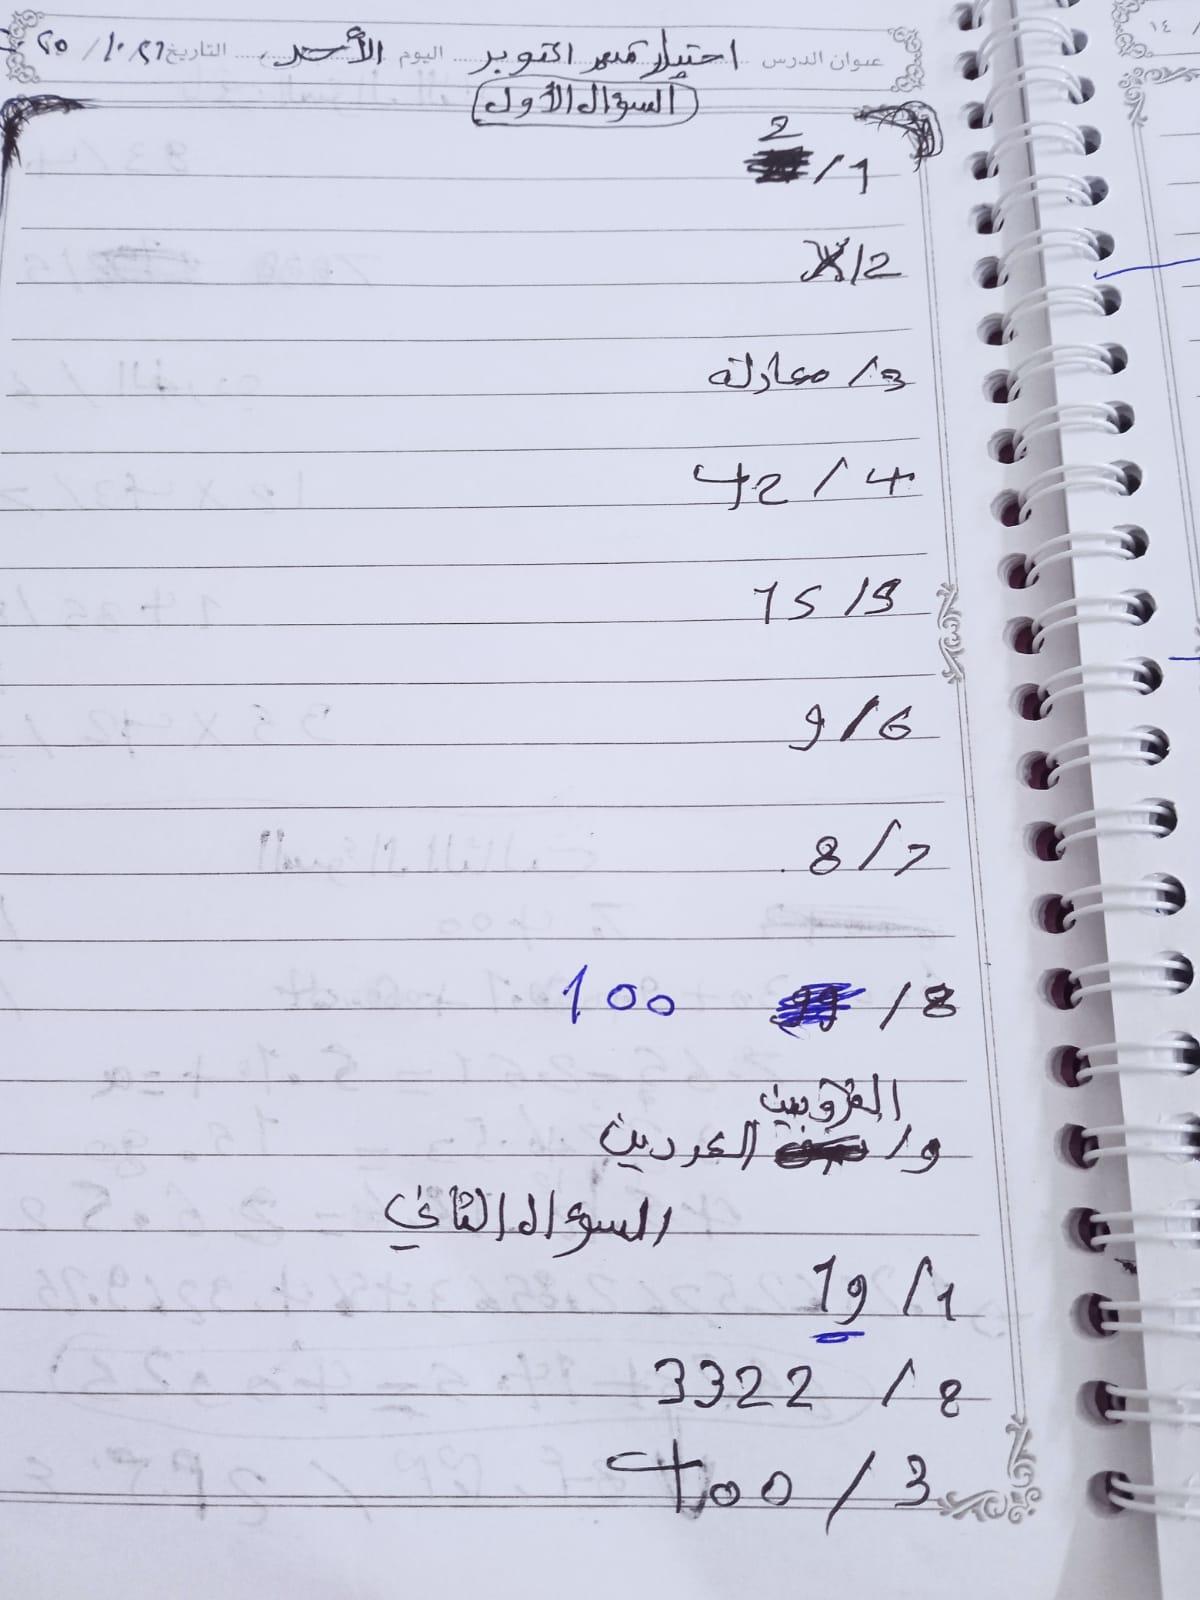 عنوان الدرس اختبار شهر اكتوبر اليوم الأحد التاريخ
السؤال الأول
2
/1
X/2
3/ معادلة
42 / 4
15 /5
9/6
8/7
100 /8
القزوبين
9/ العددين
السؤال الثاني
19 /1
3322 /2
400 /3